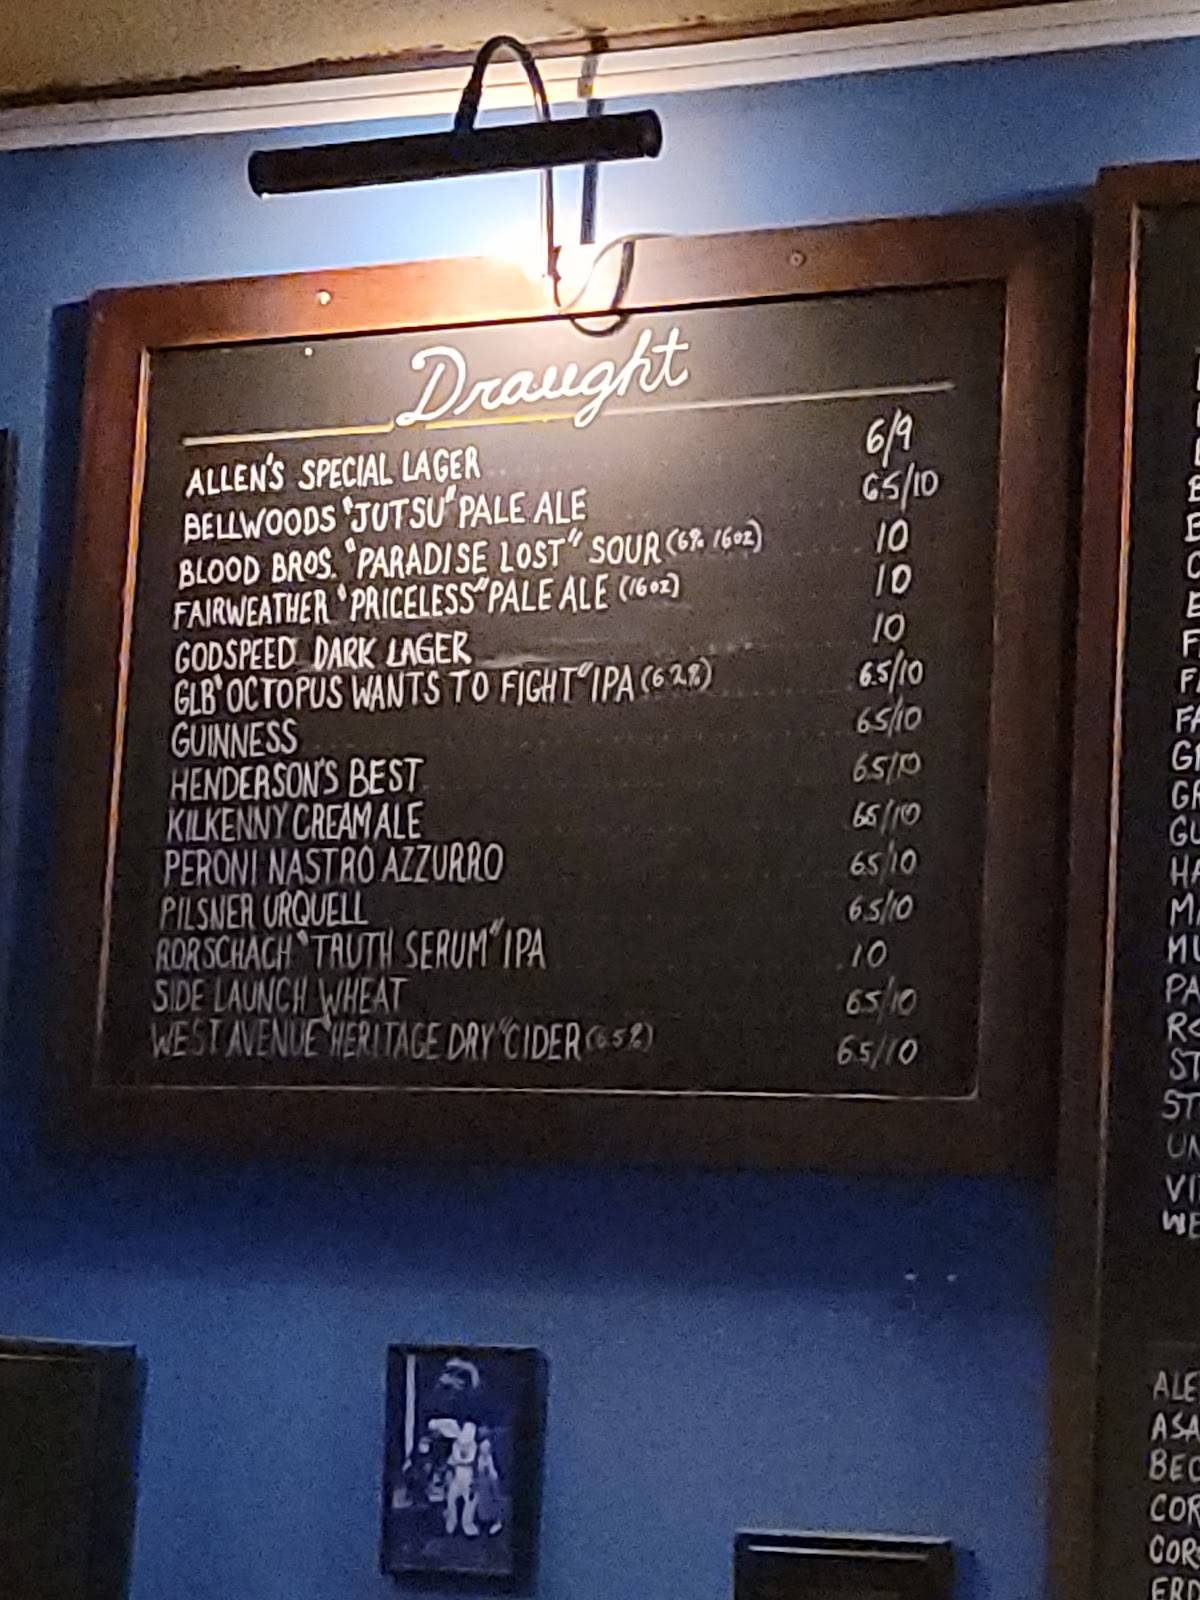 Draught
ALLEN'S SPECIAL LAGER 6/9
BELLWOODS "JUTSU" PALE ALE 6.5/10
BLOOD BROS. "PARADISE LOST" SOUR (6% 16oz) 10
FAIRWEATHER "PRICELESS" PALE ALE (16oz) 10
GODSPEED DARK LAGER 10
GLB "OCTOPUS WANTS TO FIGHT" IPA (6.2%) 6.5/10
GUINNESS 6.5/10
HENDERSON'S BEST 6.5/10
KILKENNY CREAM ALE 6.5/10
PERONI NASTRO AZZURRO 6.5/10
PILSNER URQUELL 6.5/10
RORSCHACH "TRUTH SERUM" IPA 10
SIDE LAUNCH WHEAT 6.5/10
WEST AVENUE "HERITAGE DRY" CIDER (6.5%) 6.5/10
GU
HA
MU
PA
ST
ST
UN
VI
WE
ALE
ASA
BEC
COR
CORS
ERD